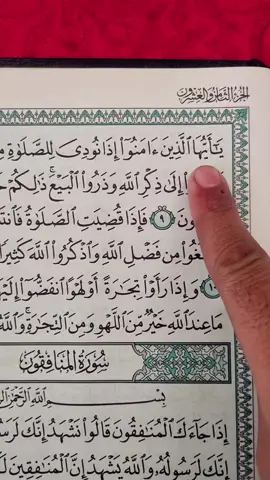 الجزء الثامن والعشرون
يَٰٓأَيُّهَا ٱلَّذِينَ ءَامَنُوٓا۟ إِذَا نُودِىَ لِلصَّلَوٰةِ
إِلَىٰ ذِكْرِ ٱللَّهِ وَذَرُوا۟ ٱلْبَيْعَ ۚ ذَٰلِكُمْ
٩ فَإِذَا قُضِيَتِ ٱلصَّلَوٰةُ
مِن فَضْلِ ٱللَّهِ وَٱذْكُرُوا۟ ٱللَّهَ كَثِيرًا
وَإِذَا رَأَوْا۟ تِجَٰرَةً أَوْ لَهْوًا ٱنفَضُّوٓا۟
مَا عِندَ ٱللَّهِ خَيْرٌ مِّنَ ٱللَّهْوِ وَمِنَ ٱلتِّجَٰرَةِ ۚ وَٱللَّهُ
سُورَةُ المُنَافِقُونَ
بِسْمِ ٱللَّهِ ٱلرَّحْمَٰنِ
إِذَا جَآءَكَ ٱلْمُنَٰفِقُونَ قَالُوا۟ نَشْهَدُ إِنَّكَ
إِنَّكَ لَرَسُولُهُۥ وَٱللَّهُ يَشْهَدُ إِنَّ ٱلْمُنَٰفِقِينَ